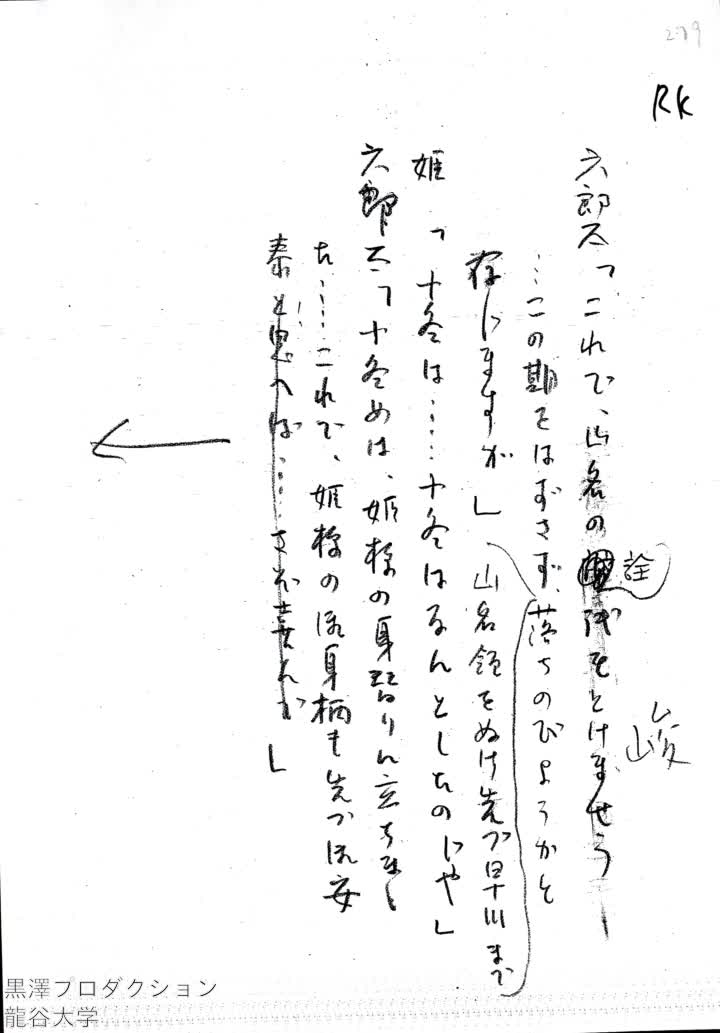 279
RK
六郎太「これで、山名の詮議もとけませう
峻
…この期をはずさず、落ちのびようかと
存じますが」
、山名領をぬけ先づ早川まで
姫「十冬は……十冬はなんとしたのじや」
六郎太「十冬めは、姫様の身替りに立ちまし
た……これで、姫様の御身柄も先づ御安
泰と思へば……さぞ喜んが」
黒澤プロダクション
龍谷大学